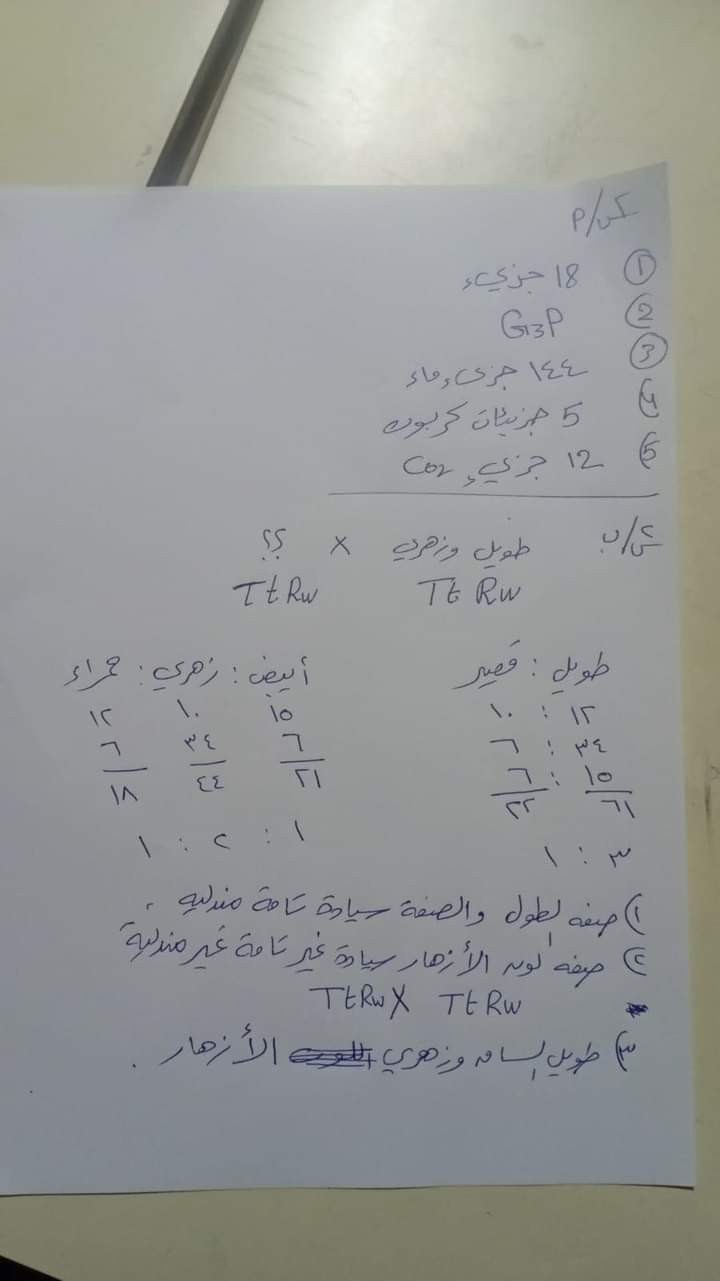 س/٢ P
① 18 جزيء
② G3P
③ ١٤٤ جزيء ماء
④ 5 جزيئات كربون
⑤ 12 جزيء CO2
س٢/ب طويل وزهري × ؟؟
Tt Rw TtRw
طويل : قصير أبيض : زهري : حمراء
١٢ : ١٠ ١٥ ١٠ ١٢
٣٤ : ٦ ٦ ٣٤ ٦
١٥ : ٦ ٢١ ٤٤ ١٨
٦١ ٢٢
٣ : ١ ١ : ٢ : ١
١) صفة الطول والصفة سيادة تامة مندلية .
٢) صفة لون الأزهار سيادة غير تامة غير مندلية
TtRw X TtRw
٣) طويل الساق وزهري الأزهار .